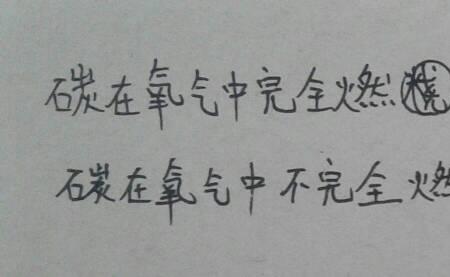 石炭在氧气中完全燃烧
石炭在氧气中不完全燃